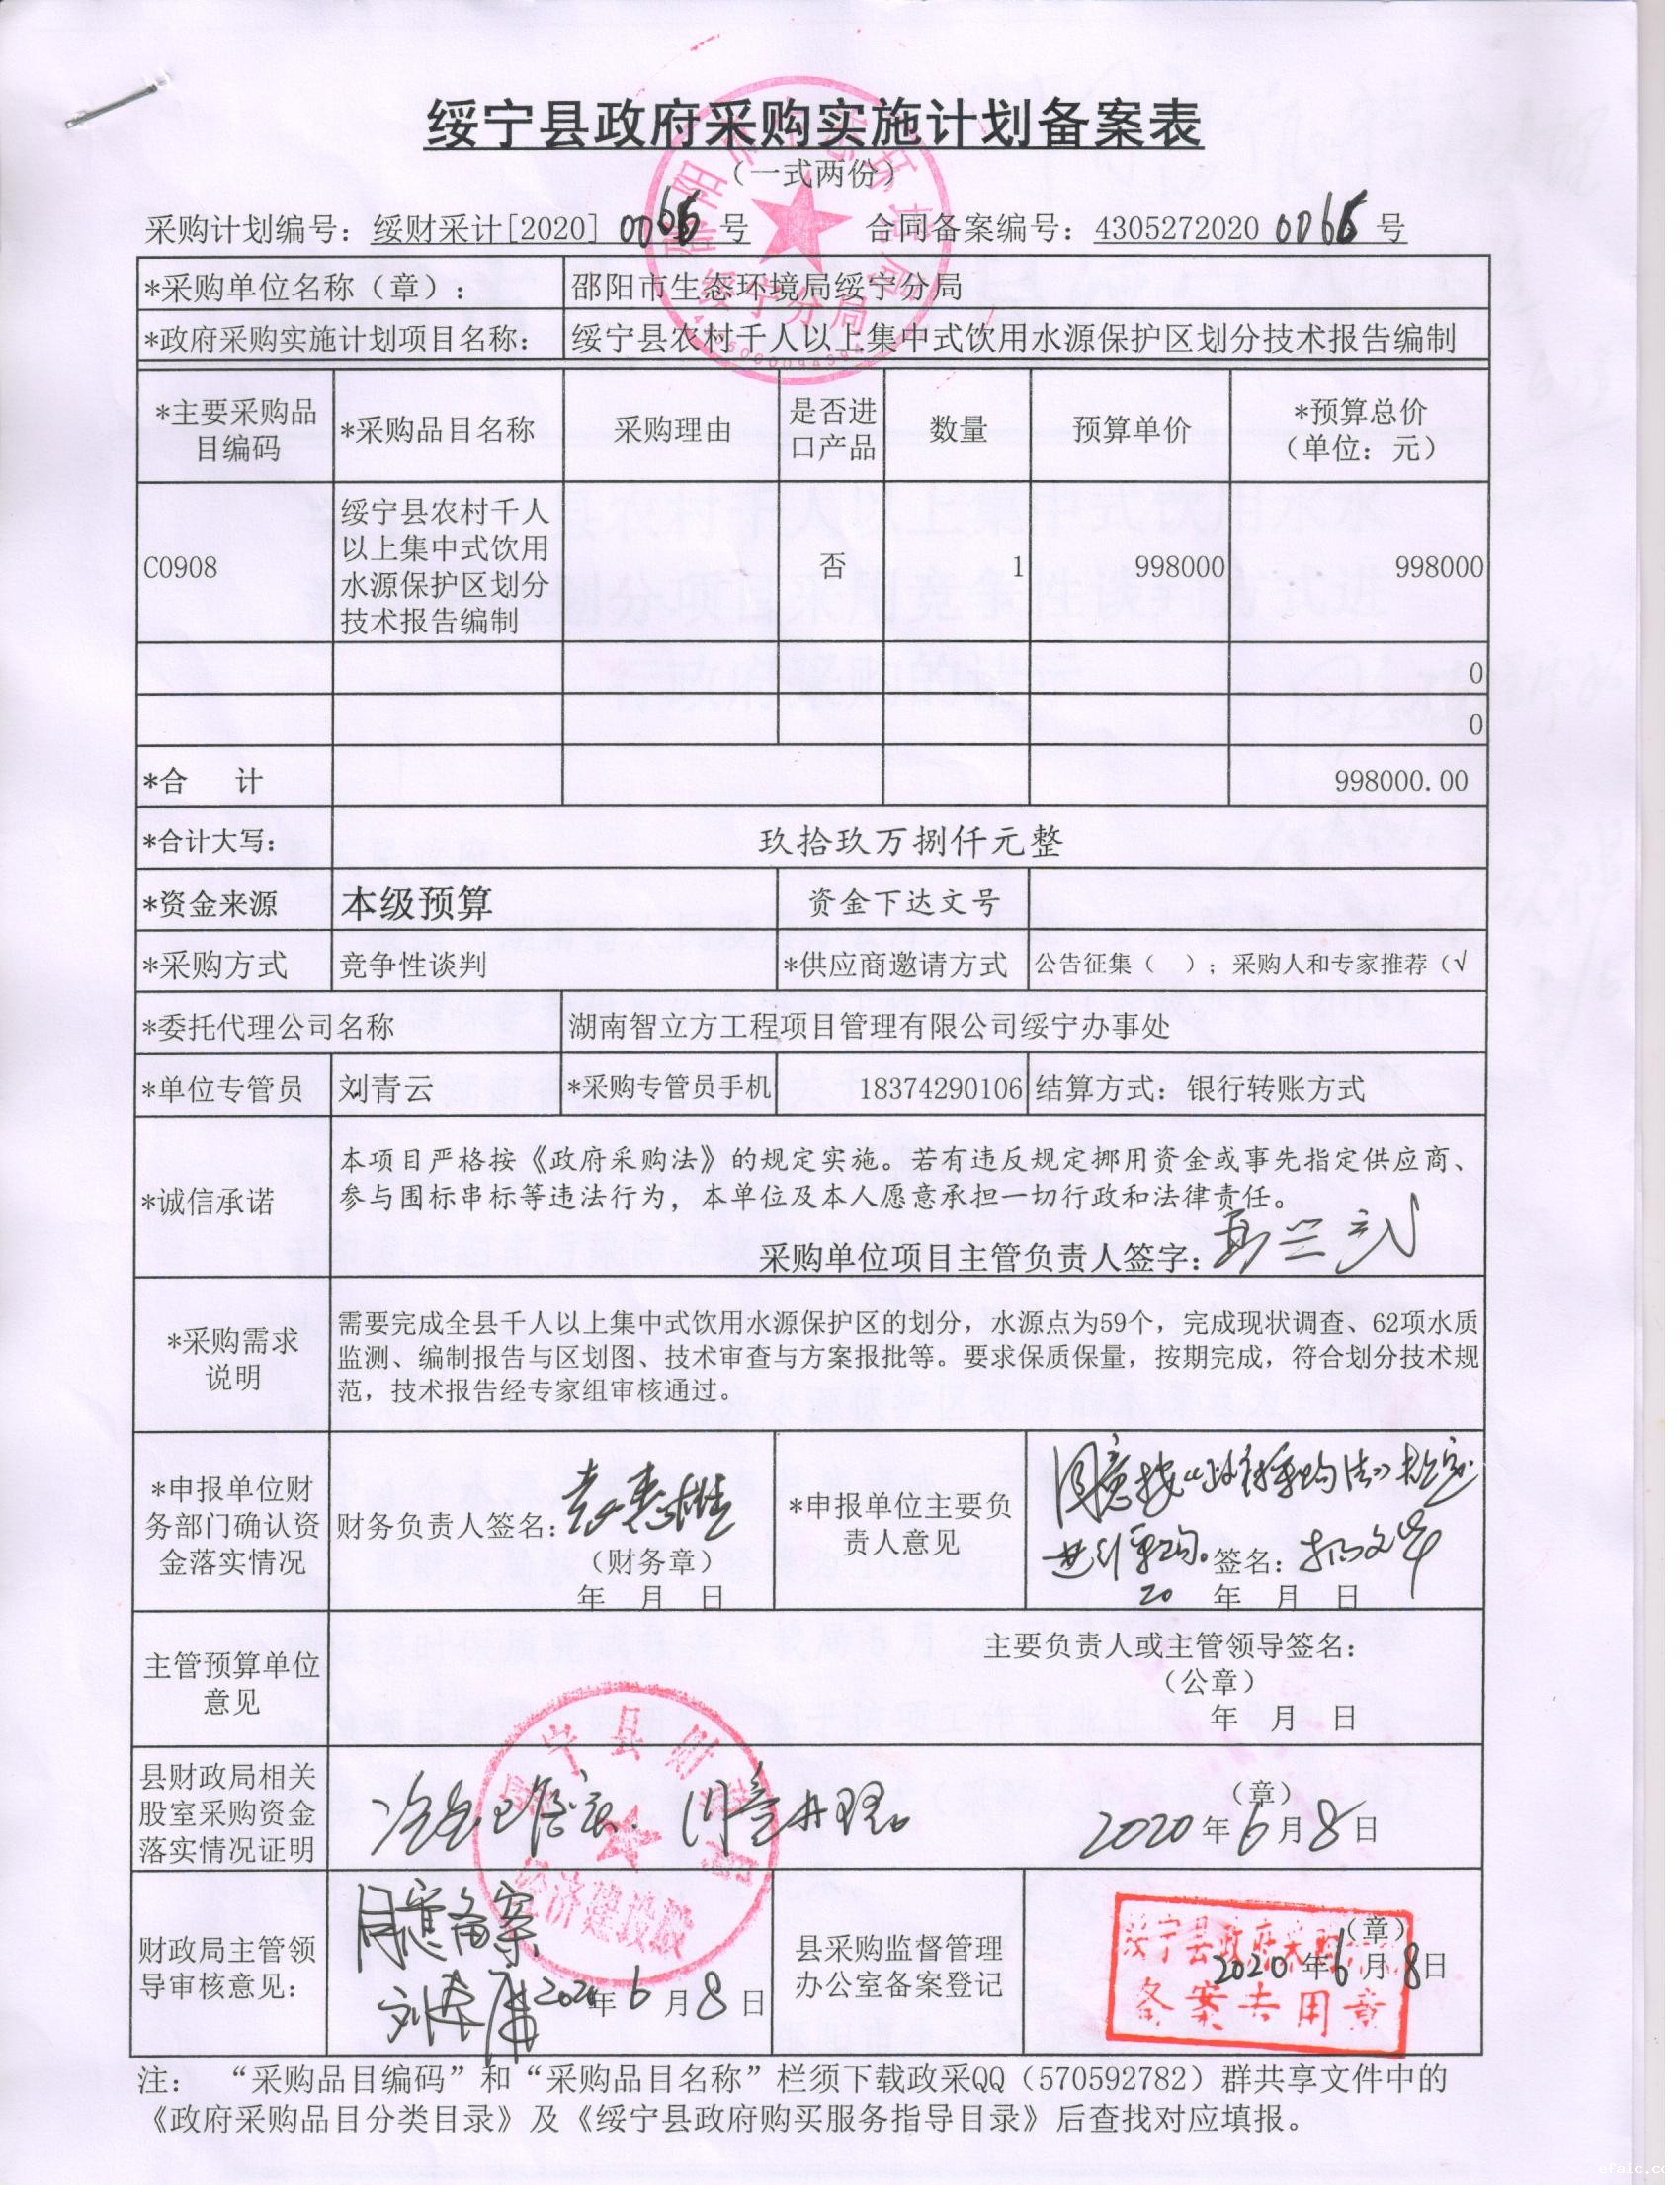 绥宁县政府采购实施计划备案表
（一式两份）
采购计划编号：绥财采计[2020] 0066 号 合同备案编号：4305272020 0066 号
*采购单位名称（章）： 邵阳市生态环境局绥宁分局
*政府采购实施计划项目名称： 绥宁县农村千人以上集中式饮用水源保护区划分技术报告编制
*主要采购品目编码 *采购品目名称 采购理由 是否进口产品 数量 预算单价 *预算总价（单位：元）
C0908 绥宁县农村千人以上集中式饮用水源保护区划分技术报告编制 否 1 998000 998000
0
0
*合 计 998000.00
*合计大写： 玖拾玖万捌仟元整
*资金来源 本级预算 资金下达文号
*采购方式 竞争性谈判 *供应商邀请方式 公告征集（ ）；采购人和专家推荐（√
*委托代理公司名称 湖南智立方工程项目管理有限公司绥宁办事处
*单位专管员 刘青云 *采购专管员手机 18374290106 结算方式：银行转账方式
*诚信承诺
本项目严格按《政府采购法》的规定实施。若有违反规定挪用资金或事先指定供应商、
参与围标串标等违法行为，本单位及本人愿意承担一切行政和法律责任。
采购单位项目主管负责人签字：
*采购需求说明
需要完成全县千人以上集中式饮用水源保护区的划分，水源点为59个，完成现状调查、62项水质
监测、编制报告与区划图、技术审查与方案报批等。要求保质保量，按期完成，符合划分技术规
范，技术报告经专家组审核通过。
*申报单位财务部门确认资金落实情况
财务负责人签名：
（财务章）
年 月 日
*申报单位主要负责人意见
同意按《政府采购法》规定
进行采购。签名：
20 年 月 日
主管预算单位意见
主要负责人或主管领导签名：
（公章）
年 月 日
县财政局相关股室采购资金落实情况证明
同意办理。
（章）
2020年6月8日
绥宁县财政局
经济建设股
财政局主管领导审核意见：
同意备案
2020年6月8日
县采购监督管理办公室备案登记
（章）
2020年6月8日
绥宁县政府采购
备案专用章
注： “采购品目编码”和“采购品目名称”栏须下载政采QQ（570592782）群共享文件中的
《政府采购品目分类目录》及《绥宁县政府购买服务指导目录》后查找对应填报。